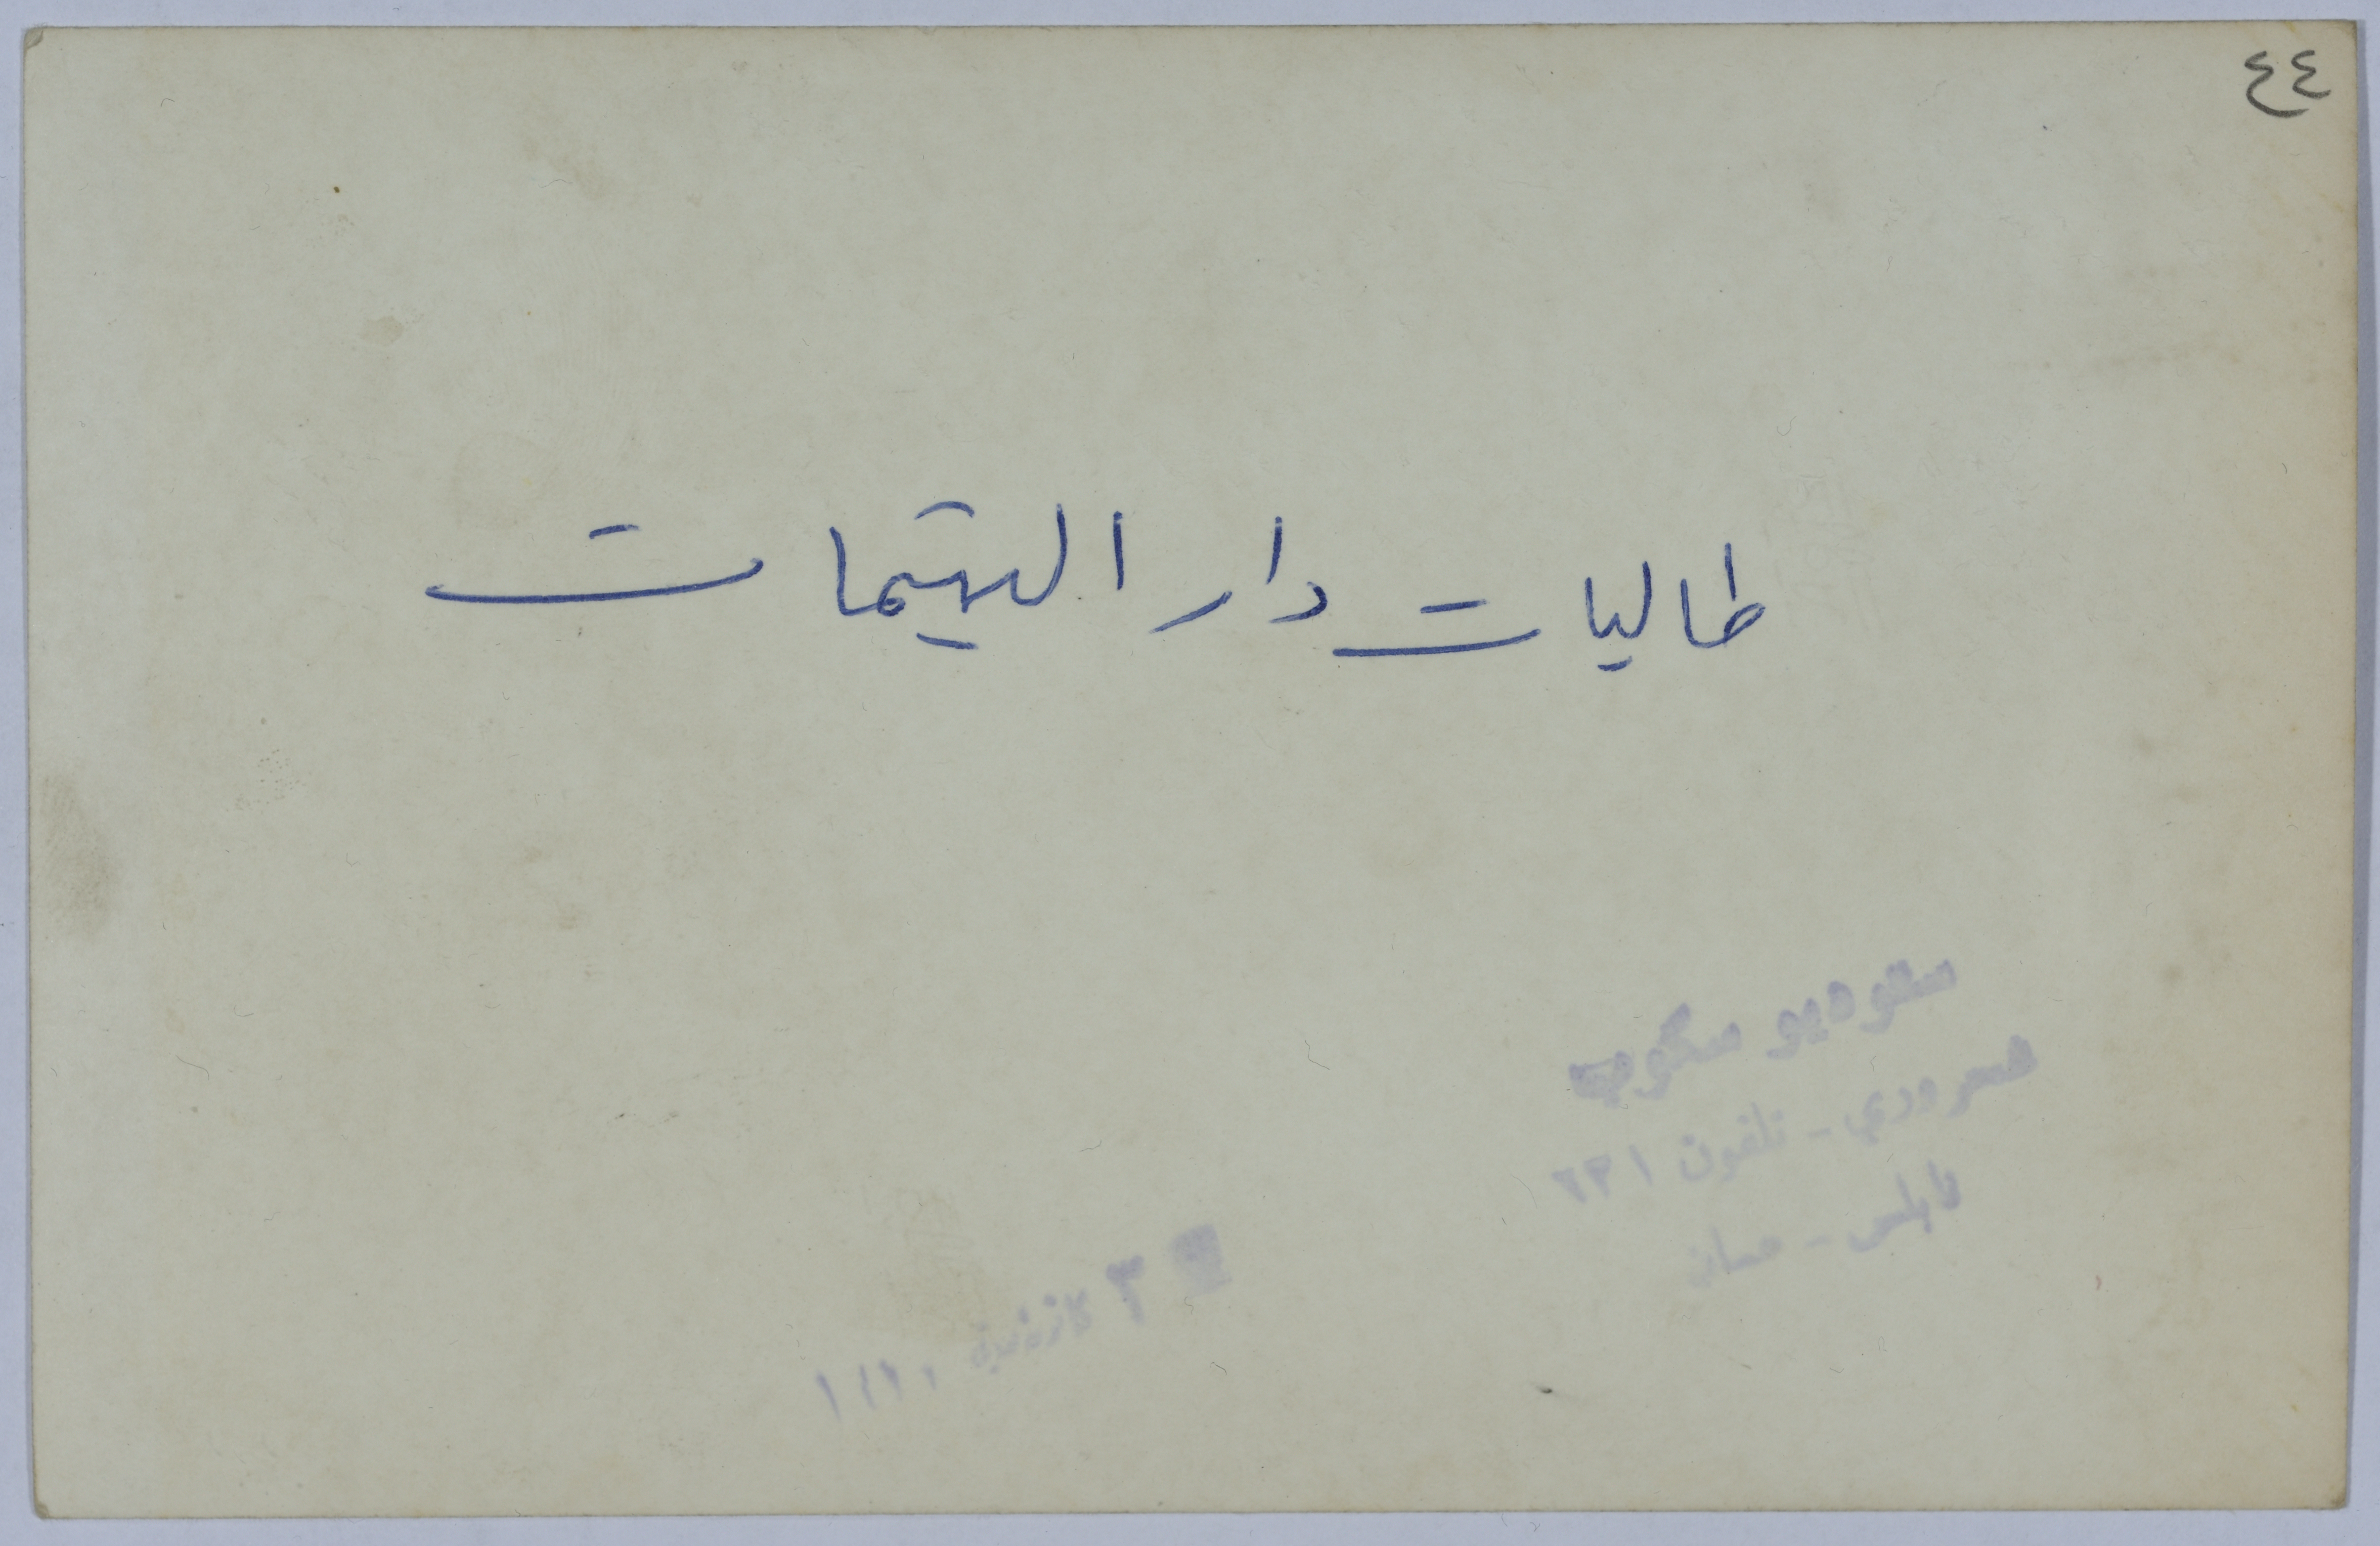 ٤٤
طالبات دار اليتيمات
ستوديو سكوب
تلفون ٦٣١
نابلس - عمان
٣ ١٩٦٠